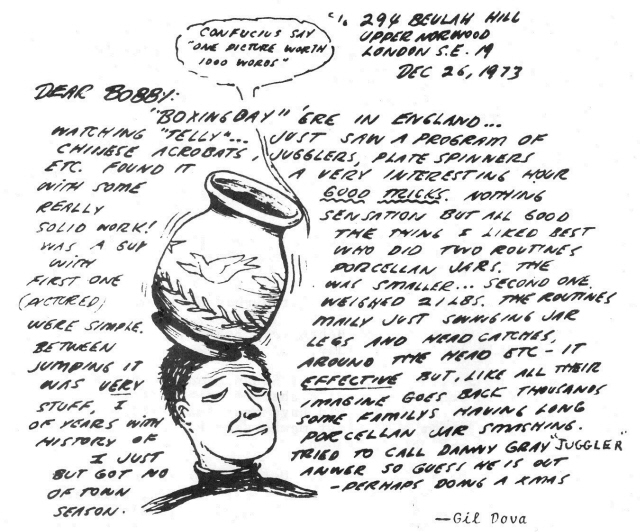 CONFUCIUS SAY
"ONE PICTURE WORTH
1000 WORDS"
c/o 294 BEULAH HILL
UPPER NORWOOD
LONDON S.E. 19
DEC 26, 1973
DEAR BOBBY:
"BOXING DAY" 'ERE IN ENGLAND...
WATCHING "TELLY"... JUST SAW A PROGRAM OF
CHINESE ACROBATS, JUGGLERS, PLATE SPINNERS
ETC. FOUND IT A VERY INTERESTING HOUR
WITH SOME GOOD TRICKS. NOTHING
REALLY SENSATION BUT ALL GOOD
SOLID WORK! THE THING I LIKED BEST
WAS A GUY WHO DID TWO ROUTINES
WITH PORCELLAN JARS. THE
FIRST ONE WAS SMALLER... SECOND ONE
(PICTURED) WEIGHED 21 LBS. THE ROUTINES
WERE SIMPLE. MAILY JUST SWINGING JAR
BETWEEN LEGS AND HEAD CATCHES,
JUMPING IT AROUND THE HEAD ETC - IT
WAS VERY EFFECTIVE BUT, LIKE ALL THEIR
STUFF, I IMAGINE GOES BACK THOUSANDS
OF YEARS WITH SOME FAMILYS HAVING LONG
HISTORY OF PORCELLAN JAR SMASHING.
I JUST TRIED TO CALL DANNY GRAY "JUGGLER"
BUT GOT NO ANWER SO GUESS HE IS OUT
OF TOWN - PERHAPS DOING A XMAS
SEASON.
—Gil Dova